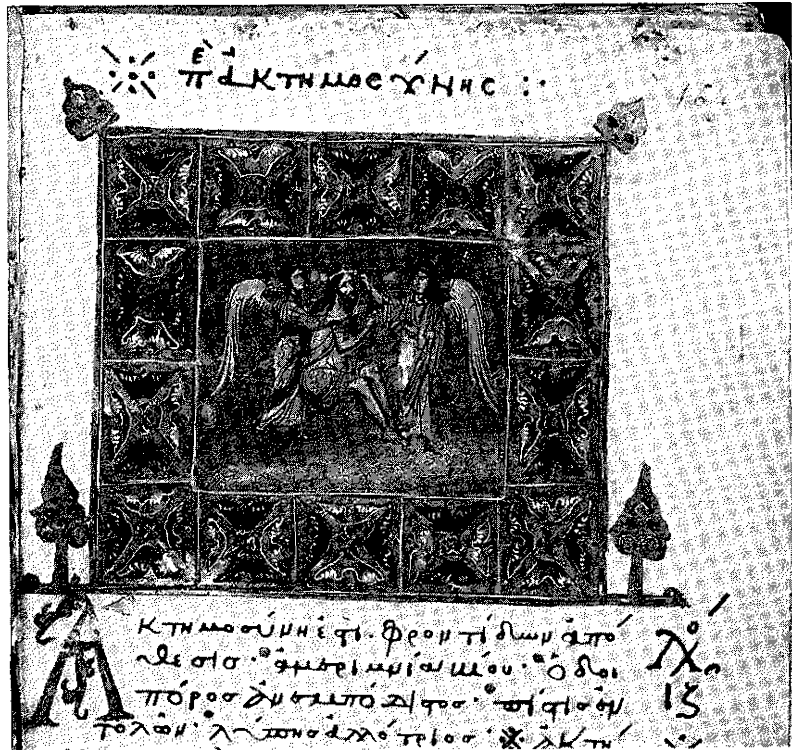 πε ἀκτημοσύνης :·
Ἀκτημοσύνη ἐστι· φροντίδων ἀπό
θεσισ· ἀμεριμνία βίου· ὁδοι
πόροσ ἀνεμπόδιστοσ· πίστισ ἐν
τολῶν· λύπησ ἀλλότριοσ· ἀκτή
ΙΖ